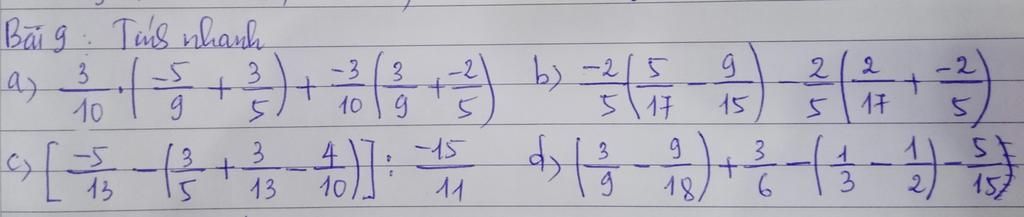 Bài 9 : Tính nhanh
a) 3/10 . (-5/9 + 3/5) + -3/10 (3/9 + -2/5) b) -2/5 (5/17 - 9/15) - 2/5 (2/17 + -2/5)
c) [-5/13 - (3/5 + 3/13 - 4/10)] : -15/11 d) (3/9 - 9/18) + 3/6 - (1/3 - 1/2) - 5/15